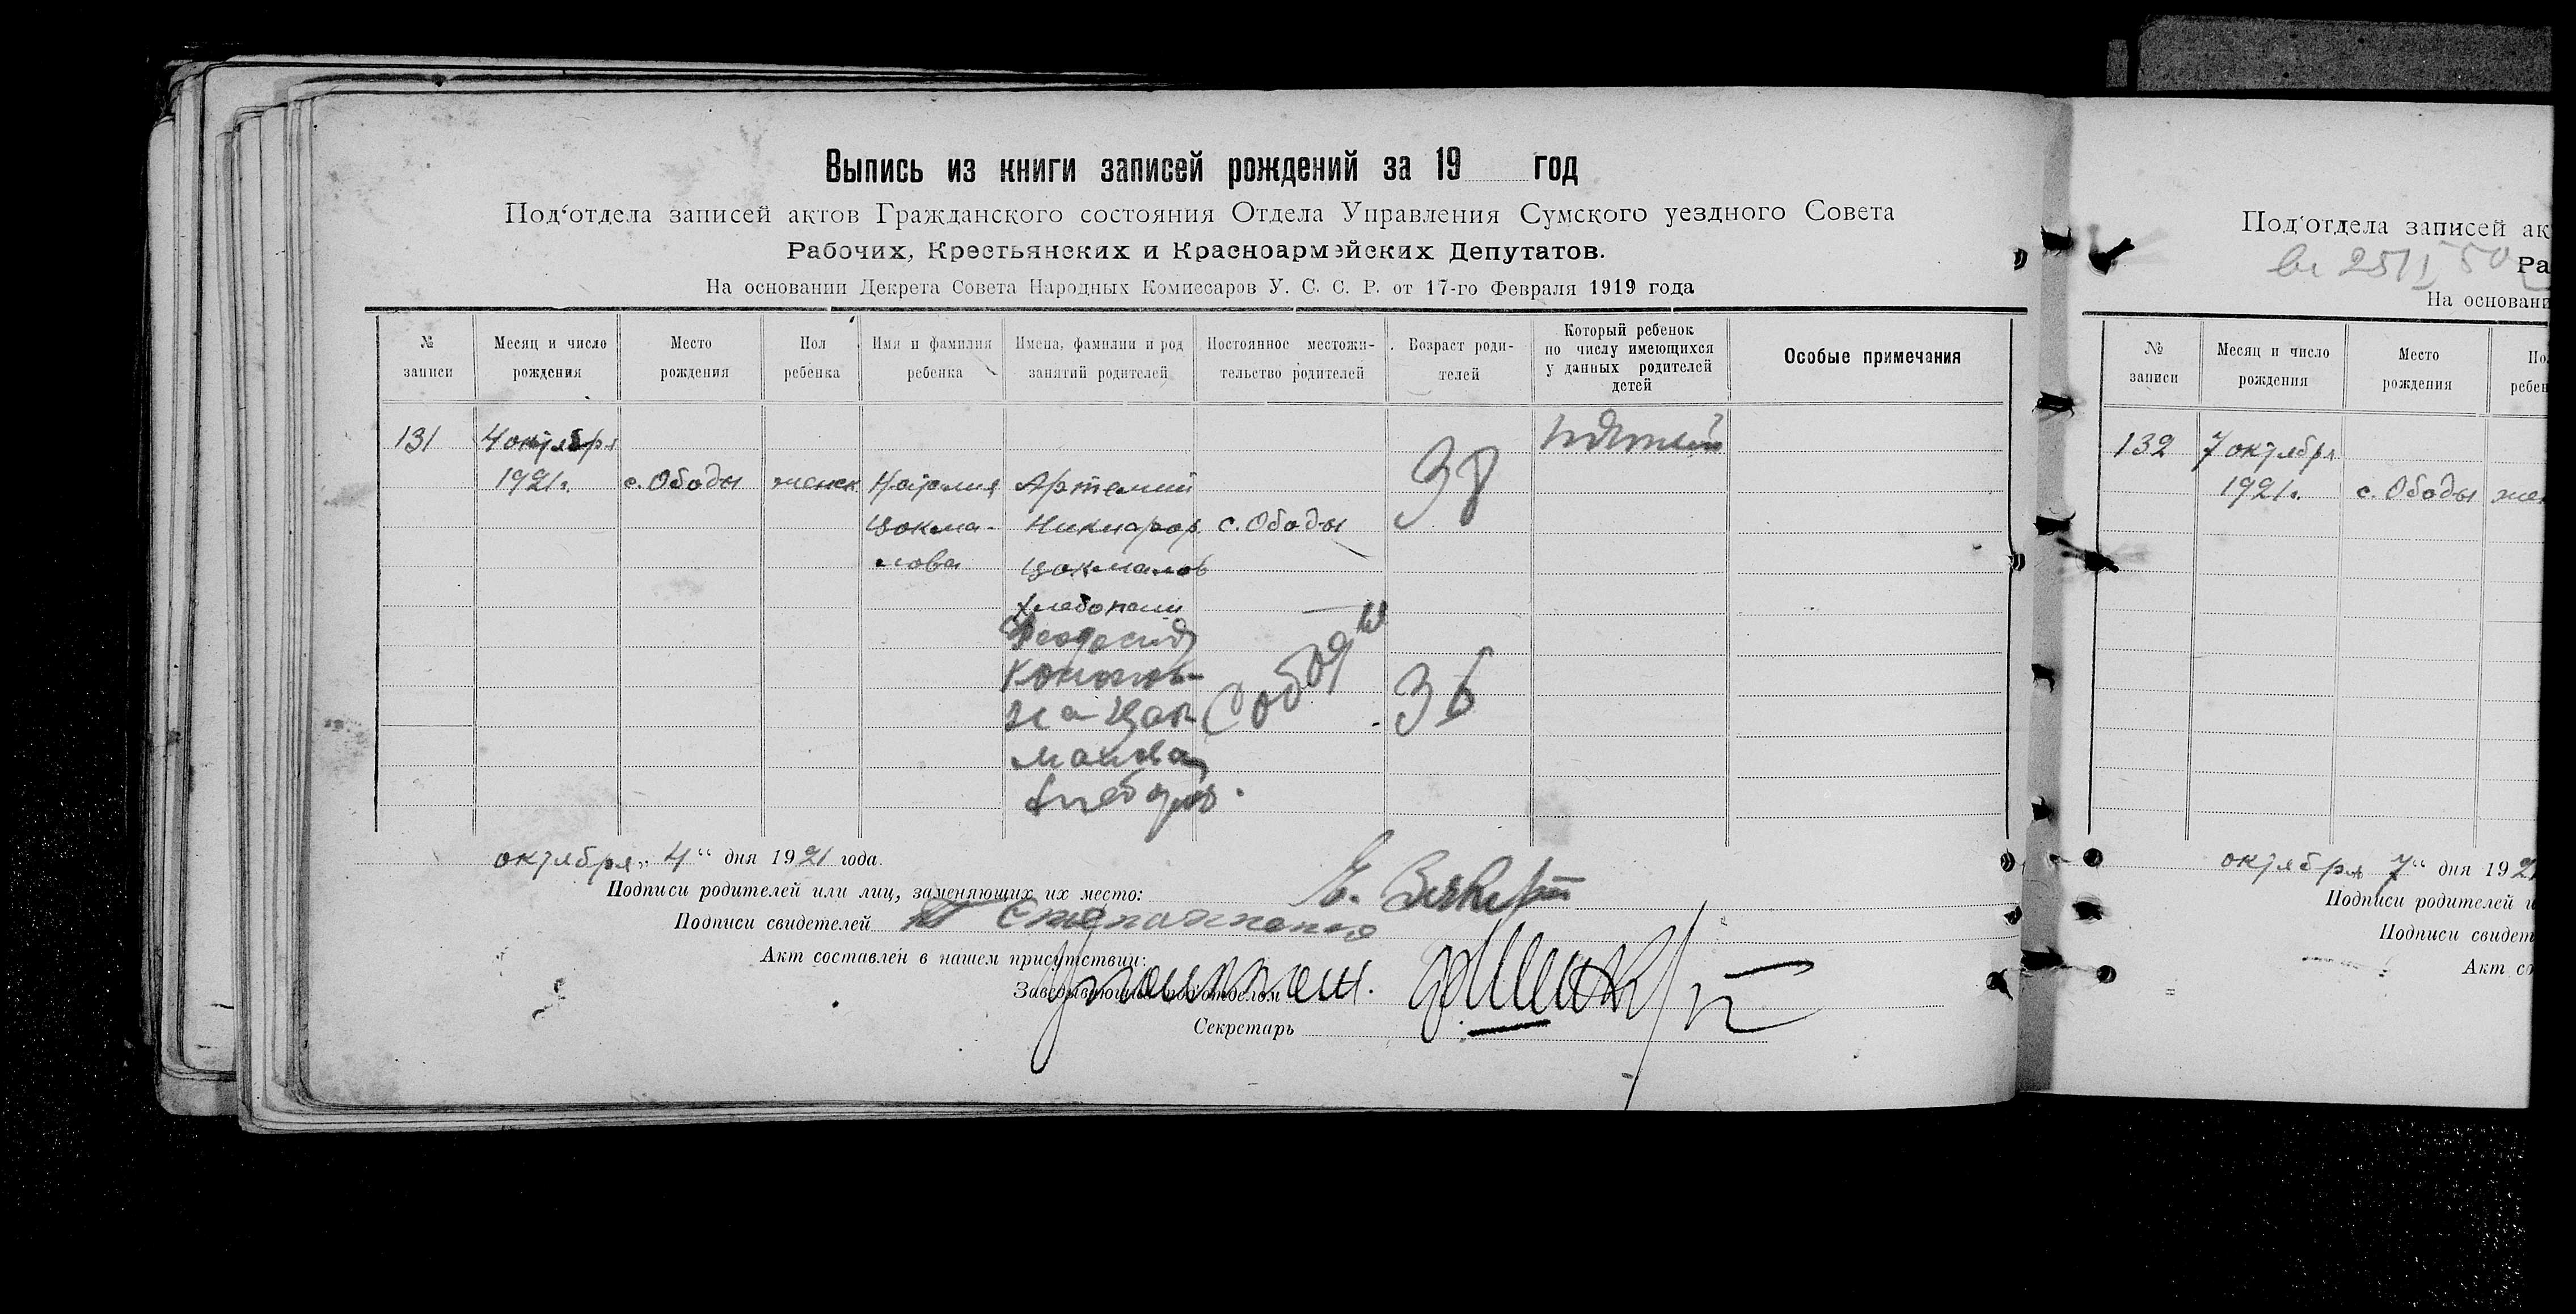 Выпись из книги записей рождений за 19 год
Под‘отдела записей актов Гражданского состояния Отдела Управления Сумского уездного Совета
Рабочих, Крестьянских и Красноармэйских Депутатов.
На основании Декрета Совета Народных Комиссаров У. С. С. Р. от 17-го Февраля 1919 года
№ записи
Месяц и число рождения
Место рождения
Пол ребенка
Имя и фамилия ребенка
Имена, фамилии и род занятий родителей
Постоянное местожительство родителей
Возраст родителей
Который ребенок по числу имеющихся у данных родителей детей
Особые примечания
131
4 октября
1921г.
с. Ободы
женск
Наталия
Цокма-
нова
Артемий
Никифор.
Цокманов
хлебопаш
Феодосия
Конон
на Цок
манова
хлебороб.
с. Ободы
с Ободы
38
36
пятый
октября „ 4 “ дня 1921 года.
Подписи родителей или лиц, заменяющих их место:
Подписи свидетелей Степаненко
Акт составлен в нашем присутствии:
Заведывающий под‘отделом
Секретарь
Под‘отдела записей ак
Ра
На основани
№ записи
Месяц и число рождения
Место рождения
По
ребен
132
7 октября
1921г.
с. Ободы
же
октября 7 “ дня 192
Подписи родителей и
Подписи свидет
Акт со